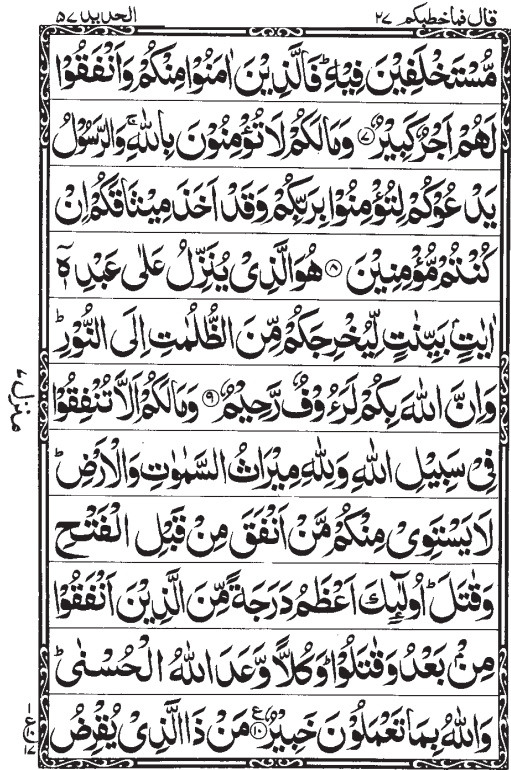 قال فما خطبكم ٢٧
الحديد ٥٧
مُّسۡتَخۡلَفِيۡنَ فِيۡهِ‌ؕ فَالَّذِيۡنَ اٰمَنُوۡا مِنۡكُمۡ وَاَنۡفَقُوۡا
لَهُمۡ اَجۡرٌ كَبِيۡرٌ ﴿۷﴾ وَمَا لَكُمۡ لَا تُؤۡمِنُوۡنَ بِاللّٰهِ‌ۚ وَالرَّسُوۡلُ
يَدۡعُوۡكُمۡ لِتُؤۡمِنُوۡا بِرَبِّكُمۡ وَقَدۡ اَخَذَ مِيۡثَاقَكُمۡ اِنۡ
كُنۡتُمۡ مُّؤۡمِنِيۡنَ ﴿۸﴾ هُوَ الَّذِىۡ يُنَزِّلُ عَلٰى عَبۡدِهٖۤ
اٰيٰتٍۭ بَيِّنٰتٍ لِّيُخۡرِجَكُمۡ مِّنَ الظُّلُمٰتِ اِلَى النُّوۡرِ‌ؕ
وَاِنَّ اللّٰهَ بِكُمۡ لَرَءُوۡفٌ رَّحِيۡمٌ ﴿۹﴾ وَمَا لَكُمۡ اَلَّا تُنۡفِقُوۡا
فِىۡ سَبِيۡلِ اللّٰهِ وَلِلّٰهِ مِيۡرَاثُ السَّمٰوٰتِ وَالۡاَرۡضِ‌ؕ
لَا يَسۡتَوِىۡ مِنۡكُمۡ مَّنۡ اَنۡفَقَ مِنۡ قَبۡلِ الۡفَتۡحِ
وَقٰتَلَ‌ؕ اُولٰٓٮِٕكَ اَعۡظَمُ دَرَجَةً مِّنَ الَّذِيۡنَ اَنۡفَقُوۡا
مِنۡۢ بَعۡدُ وَقٰتَلُوۡا‌ؕ وَكُلًّا وَّعَدَ اللّٰهُ الۡحُسۡنٰى‌ؕ
وَاللّٰهُ بِمَا تَعۡمَلُوۡنَ خَبِيۡرٌ ﴿۱۰﴾ مَنۡ ذَا الَّذِىۡ يُقۡرِضُ
منزل ٧